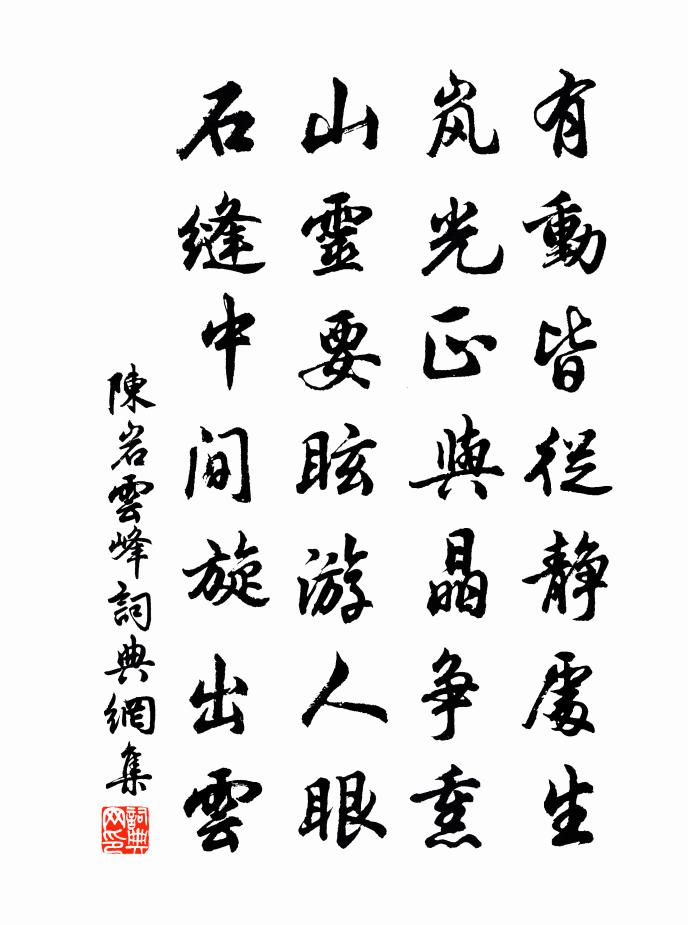 有動皆從靜處生
岚光正與晶争熏
山靈要眩游人眼
石縫中間旋出雲
陳岩雲峰詞典網集
詞典网印